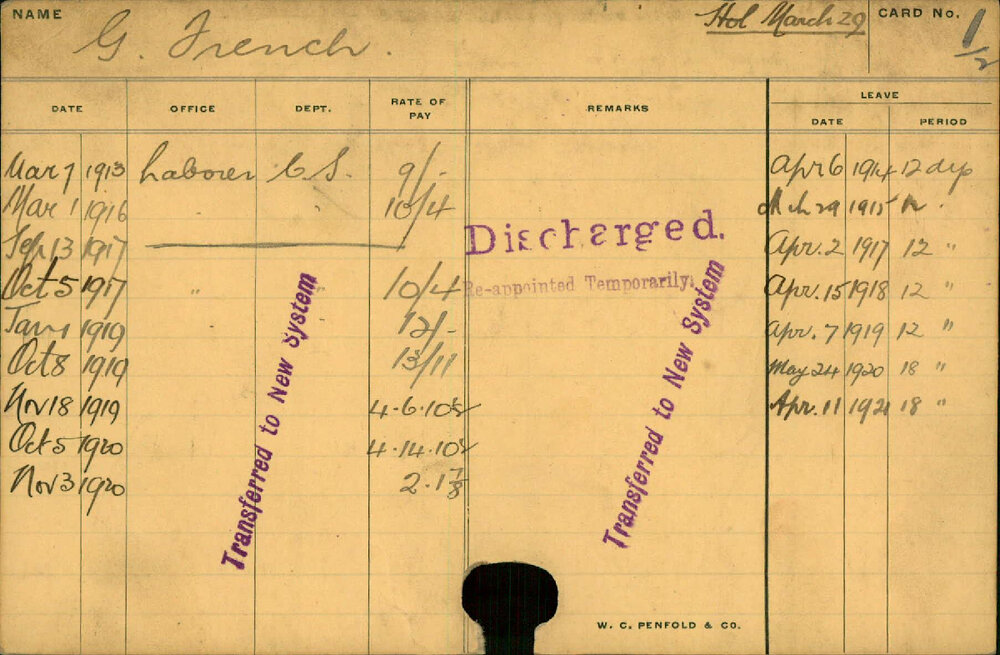 NAME G. French. Hol March 29 CARD No. 1/2
DATE OFFICE DEPT. RATE OF PAY REMARKS LEAVE
DATE PERIOD
Mar 7 1913 Laborer C.S. 9/- Apr 6 1914 12 dys
Mar 1 1916 " 10/4 Mch 29 1915 12 "
Sep 13 1917 Discharged. Apr. 2 1917 12 "
Oct 5 1917 " " 10/4 Re-appointed Temporarily. Apr. 15 1918 12 "
Jan 1 1919 12/- Apr. 7 1919 12 "
Oct 8 1919 13/11 May 24 1920 18 "
Nov 18 1919 4.6.10½ Apr. 11 1921 18 "
Oct 5 1920 4.14.10½
Nov 3 1920 2.1⅞
Transferred to New System
Transferred to New System
W. C. PENFOLD & CO.